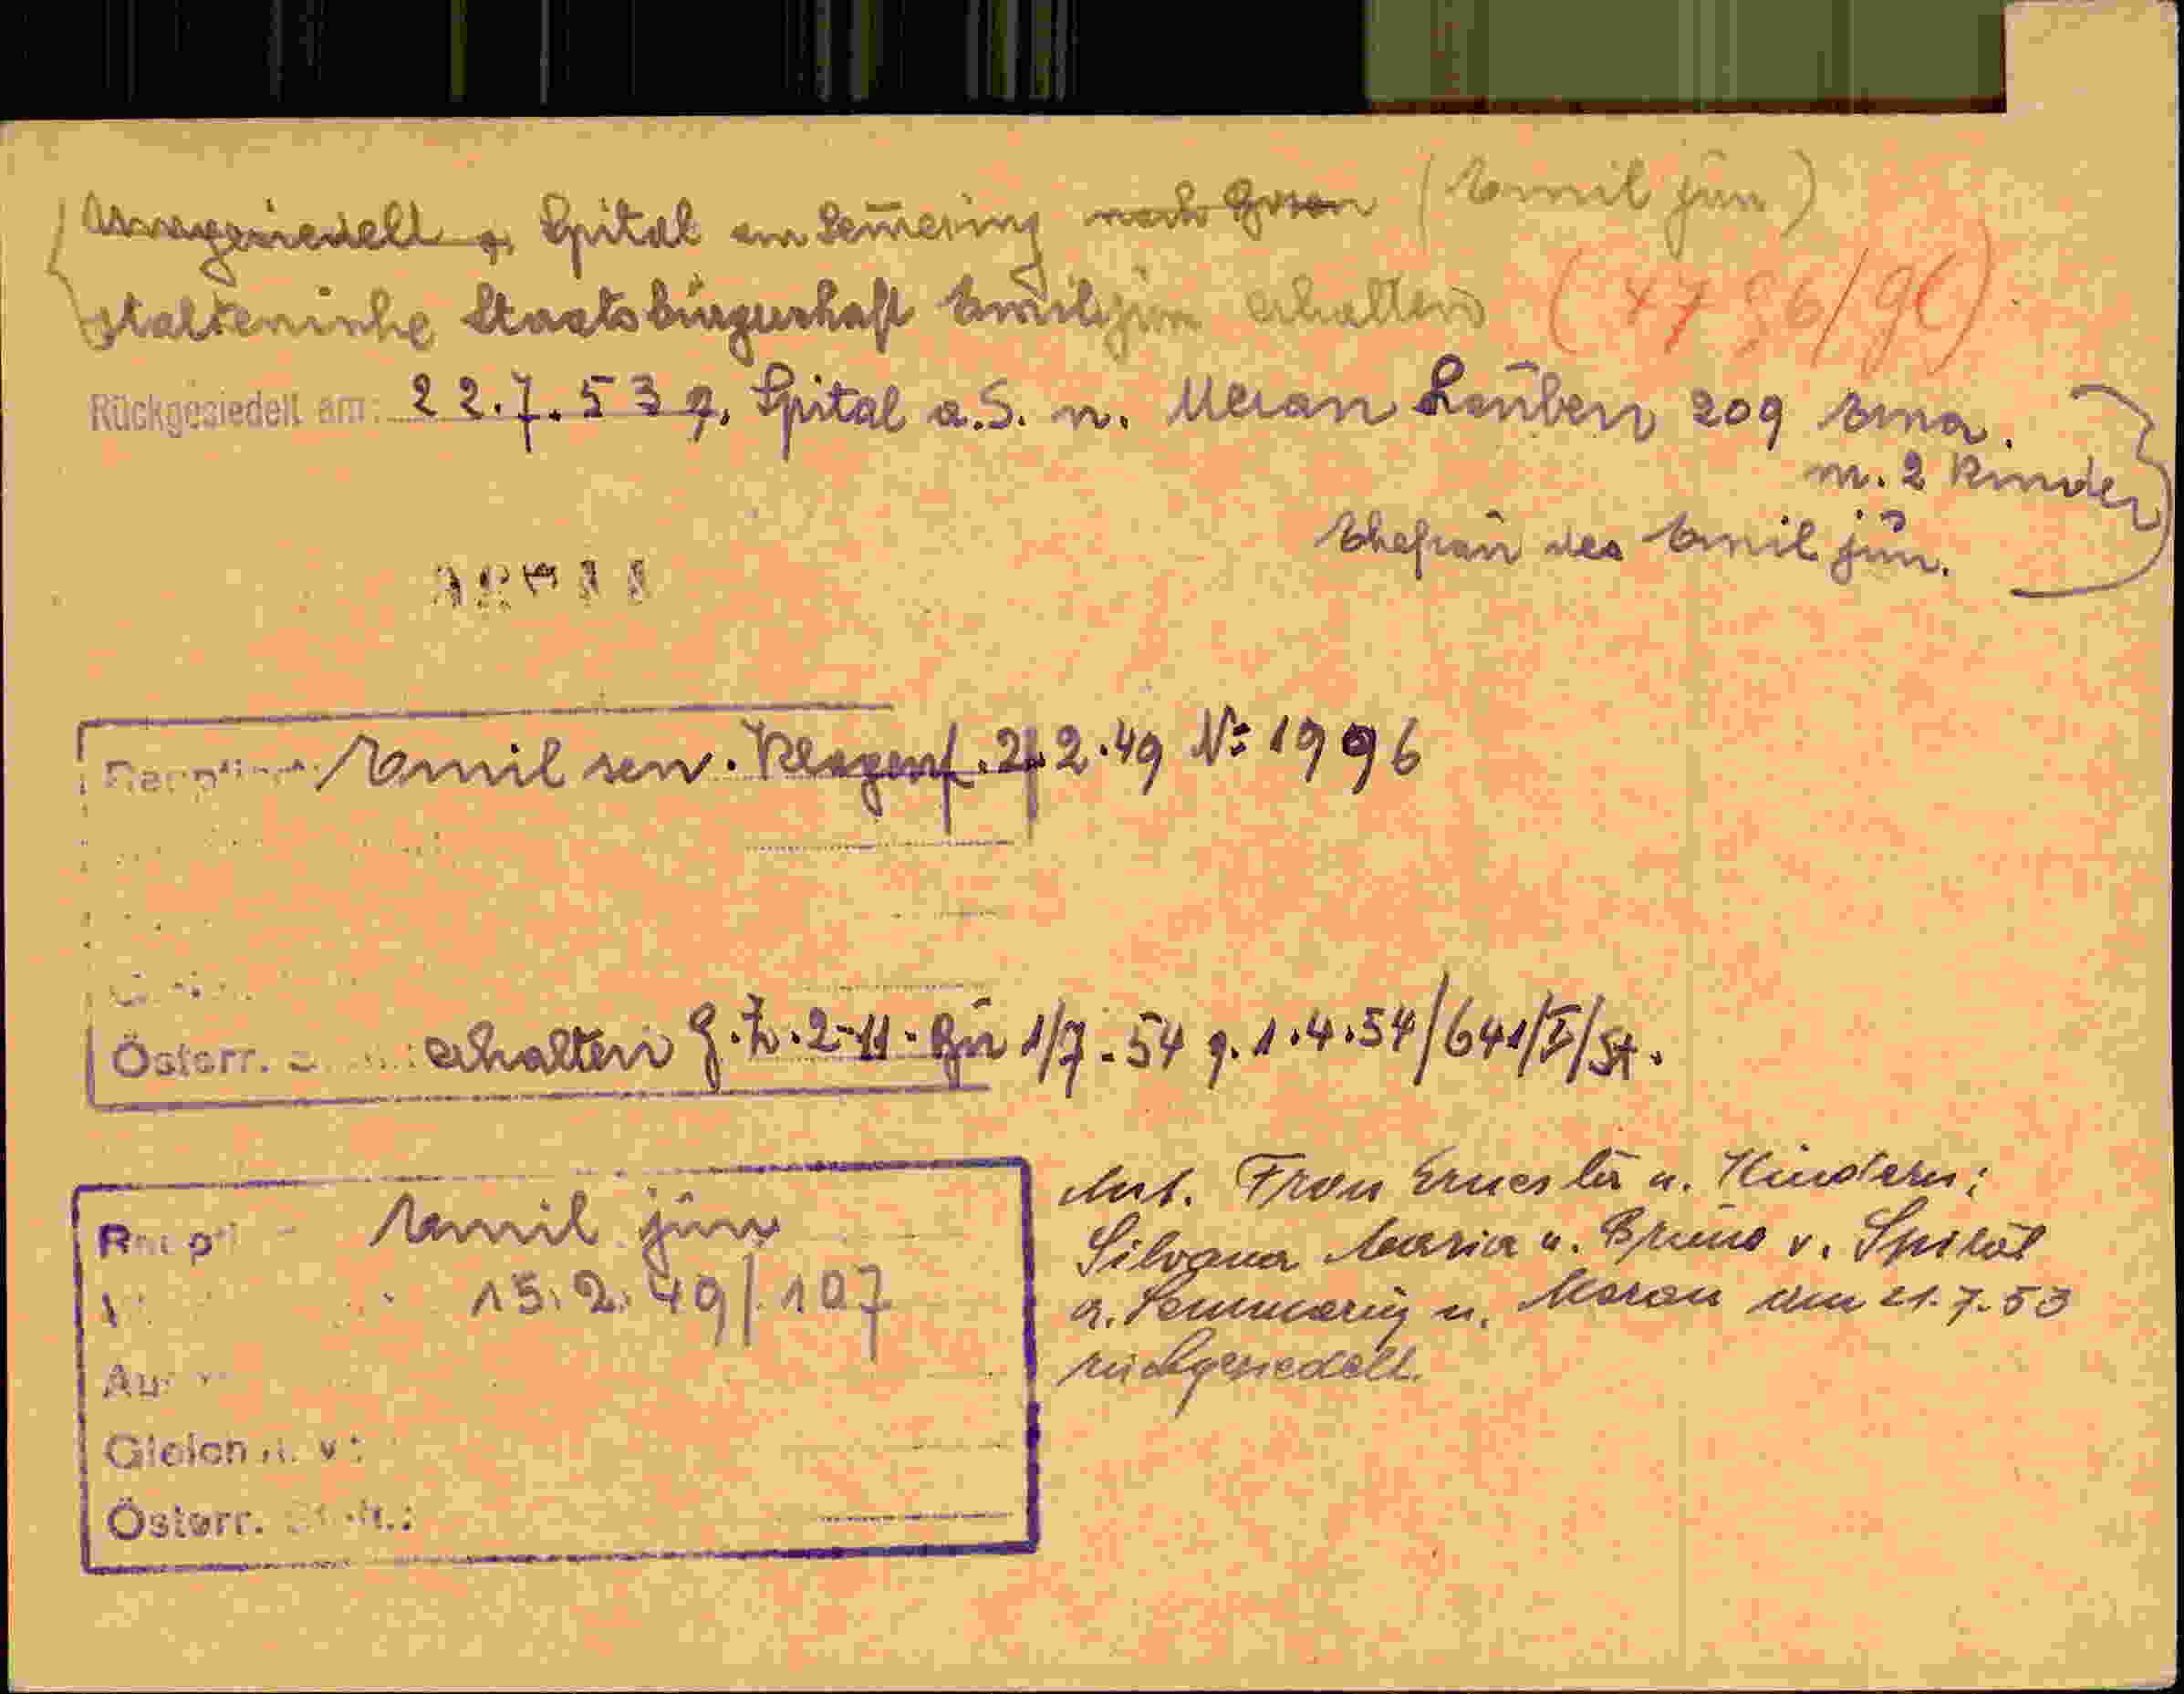 Umgesiedelt v. Spital am Semmering nach Gosen (Emil jun)
italienische Staatsbürgerschaft Emil jun erhalten (4756/96)
Rückgesiedelt am: 22.7.53 v. Spital a.S. n. Meran Lauben 209 Erna.
m. 2 Kinder
Ehefrau des Emil jun.
Emil sen. Klagenf. 2.49 №: 1996
Österr. erhalten G.Z. 2-11. 1/7-54 v. 1.4.54/641/I/St.
Emil jun
15.2.49/107
Österr.
Ant. Frau Ernesta u. Kindern:
Silvana Maria u. Bruno v. Spital
a. Semmering n. Meran am 21.7.53
rückgesiedelt.